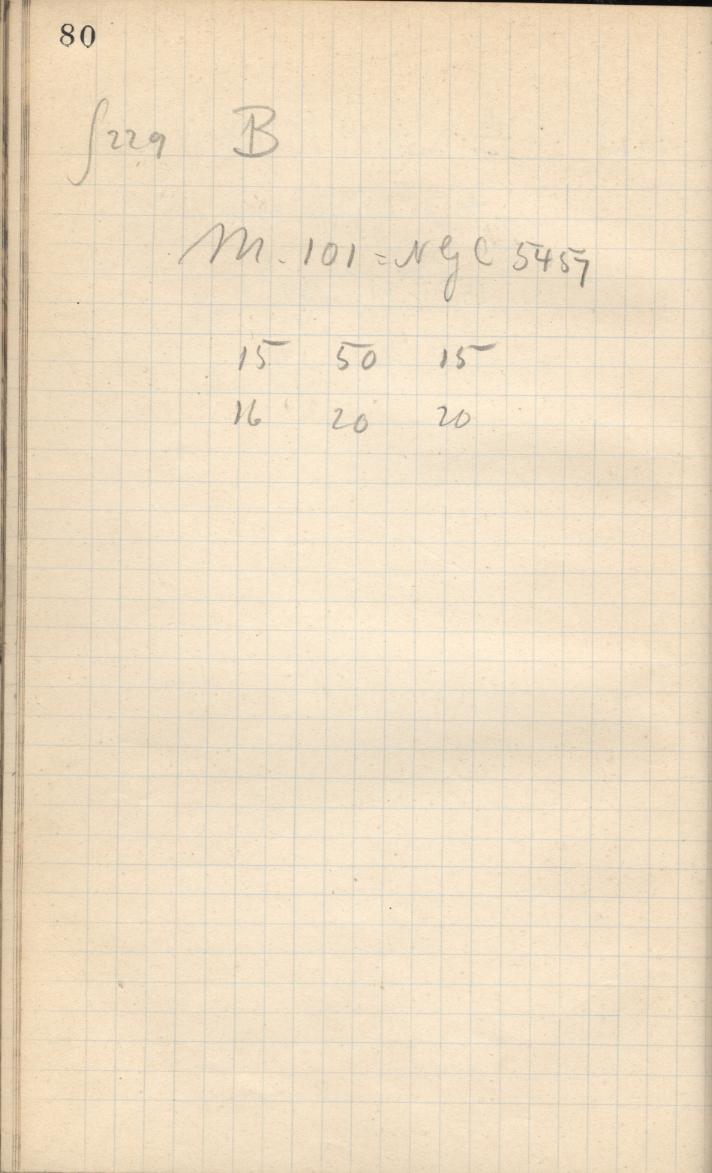 80
∫229 B
M. 101 = NGC 5457
15 50 15
16 20 20